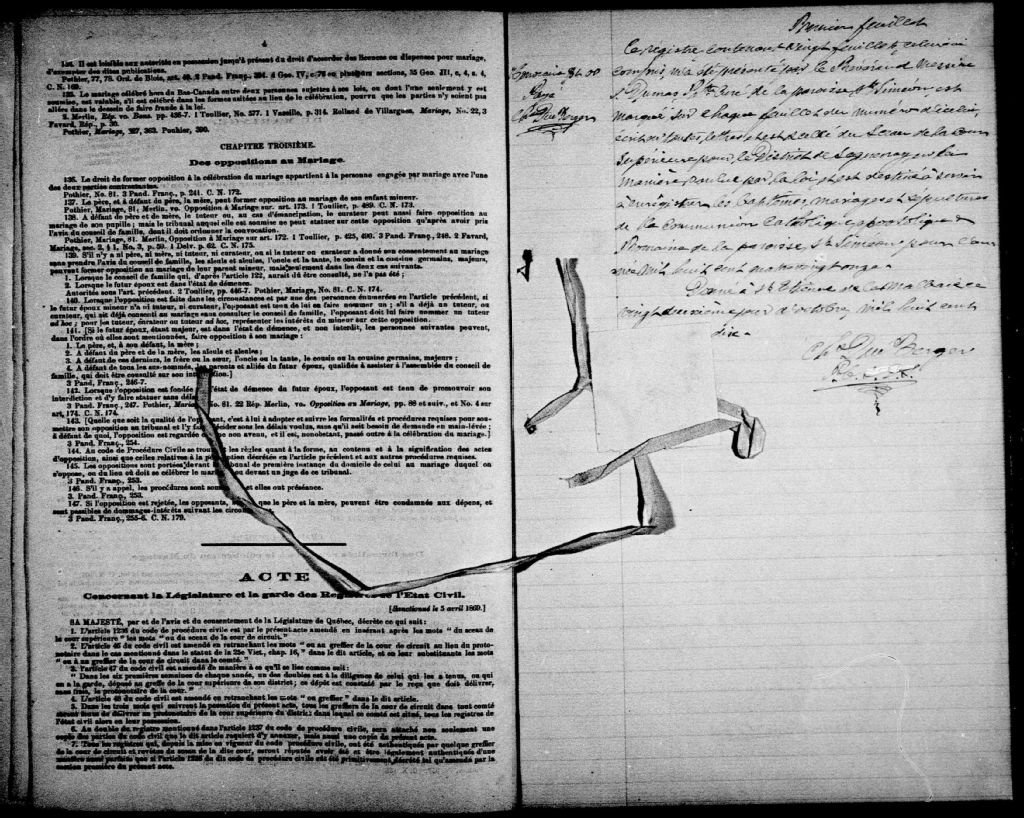 4
134. Il est loisible aux autorités en possession jusqu'à présent du droit d'accorder des licences ou dispenses pour mariage,
d'exempter des dites publications.
Pothier, 77, 78. Ord. de Blois, art. 40. 2 Pand. Franç., 4 Geo. IV, c.
C. N. 169.
135. Le mariage célébré hors du Bas-Canada entre deux personnes sujettes à ses lois, ou dont l'une seulement y est
soumise, est valable, s'il est célébré dans les formes usitées au lieu de la célébration, pourvu que les parties n'y soient pas
allées dans le dessein de faire fraude à la loi.
2. Merlin, Rép. vo. Bans. pp. 436-7. 1 Toullier, No. 577. 1 Vazeille, p. 314. Rolland de Villargues, Mariage, No. 22, 3
Favard, Rép., p. 36.
Pothier, Mariage, 327, 363. Pouhier, 390.
CHAPITRE TROISIÈME.
Des oppositions au Mariage.
136. Le droit de former opposition à la célébration du mariage appartient à la personne engagée par mariage avec l'une
des deux parties contractantes.
Pothier, No. 81. 3 Pand. Franç., p. 241. C. N. 172.
137. Le père, et à défaut du père, la mère, peut former opposition au mariage de son enfant mineur.
Pothier, Mariage, 81. Merlin, vo. Opposition à Mariage sur art. 173. 1 Toullier, p. 489. C. N. 173.
138. A défaut de père et de mère, le tuteur ou, au cas d'émancipation, le curateur peut aussi faire opposition au
mariage de son pupille; mais le tribunal auquel elle est soumise ne peut statuer sur cette opposition qu'après avoir pris
l'avis du conseil de famille, dont il doit ordonner la convocation.
Pothier, Mariage, 81. Merlin, Opposition à Mariage sur art. 172. 1 Toullier, p. 425, 490. 3 Pand. Franç., 248. 2 Favard,
Mariage, sec. 2, § 1, No. 3, p. 59. 1 Delv. p. 62. C. N. 175.
139. S'il n'y a ni père, ni mère, ni tuteur, ni curateur, ou si le tuteur ou curateur a donné son consentement au mariage
sans prendre l'avis du conseil de famille, les aïeuls et aïeules, l'oncle et la tante, le cousin et la cousine germains, majeurs,
peuvent former opposition au mariage de leur parent mineur, mais seulement dans les deux cas suivants.
1. Lorsque le conseil de famille qui, d'après l'article 122, aurait dû être consulté, ne l'a pas été;
2. Lorsque le futur époux est dans l'état de démence.
Autorités sous l'art. précédent. 2 Toullier, pp. 446-7. Pothier, Mariage, No. 81. C. N. 174.
140. Lorsque l'opposition est faite dans les circonstances et par une des personnes énumérées en l'article précédent, si
le futur époux mineur n'a ni tuteur, ni curateur, l'opposant est tenu de lui en faire nommer un; s'il a déjà un tuteur, ou
curateur, qui ait déjà consenti au mariage sans consulter le conseil de famille, l'opposant doit lui faire nommer un tuteur
ad hoc; pour les tuteur, curateur ou tuteur ad hoc, représenter les intérêts du mineur sur cette opposition.
141. [Si le futur époux, étant majeur, est dans l'état de démence, et non interdit, les personnes suivantes peuvent,
dans l'ordre où elles sont mentionnées, faire opposition à son mariage:
1. Le père, et, à son défaut, la mère;
2. A défaut du père et de la mère, les aïeuls et aïeules;
3. A défaut de ces derniers, le frère ou la sœur, l'oncle ou la tante, le cousin ou la cousine germains, majeurs;
4. A défaut de tous les sus-nommés, les parents et alliés du futur époux, qualifiés à assister à l'assemblée du conseil de
famille, qui doit être consulté sur son interdiction.]
3 Pand. Franç., 246-7.
142. Lorsque l'opposition est fondée l'état de démence du futur époux, l'opposant est tenu de promouvoir son
interdiction et d'y faire statuer sans délai.
3 Pand. Franç., 247. Pothier, Mariage, No. 81. 22 Rép. Merlin, vo. Opposition au Mariage, pp. 88 et suiv., et No. 4 sur
art. 174. C. N. 174.
143. [Quelle que soit la qualité de l'opposant, c'est à lui à adopter et suivre les formalités et procédures requises pour sou-
mettre son opposition au tribunal et l'y faire décider sous les délais voulus, sans qu'il soit besoin de demande en main-levée;
à défaut de quoi, l'opposition est regardée comme non avenue, et il est, nonobstant, passé outre à la célébration du mariage.]
3 Pand. Franç., 254.
144. Au code de Procédure Civile se trouvent les règles quant à la forme, au contenu et à la signification des actes
d'opposition, ainsi que celles relatives à la péremption décrétée en l'article précédent et aux autres procédures requises.
145. Les oppositions sont portées devant le tribunal de première instance du domicile de celui au mariage duquel on
s'oppose, ou du lieu où doit se célébrer le mariage, ou devant un juge de ce tribunal.
3 Pand. Franç., 253.
146. S'il y a appel, les procédures sont sommaires et elles ont préséance.
3. Pand. Franç., 253.
147. Si l'opposition est rejetée, les opposants, autres que le père et la mère, peuvent être condamnés aux dépens, et
sont passibles de dommages-intérêts suivant les circonstances.
3 Pand. Franç., 255-6. C. N. 179.
ACTE
Concernant la Législature et la garde des Registres de l'Etat Civil.
[Sanctionné le 5 avril 1869.]
SA MAJESTÉ, par et de l'avis et du consentement de la Législature de Québec, décrète ce qui suit:
1. L'article 1236 du code de procédure civile est par le présent acte amendé en insérant après les mots "du sceau de
la cour supérieure" les mots "ou du sceau de la cour de circuit."
2. L'article 46 du code civil est amendé en retranchant les mots "ou au greffier de la cour de circuit au lieu du proto-
notaire dans le cas mentionné dans le statut de la 25e Vict., chap. 16," dans le dit article, et en leur substituant les mots
"ou à un greffier de la cour de circuit dans le comté."
3. l'article 47 du code civil est amendé de manière à ce qu'il se lise comme suit:
"Dans les six premières semaines de chaque année, un des doubles est à la diligence de celui qui les a tenus, ou qui
en a la garde, déposé au greffe de la cour supérieure de son district; ce dépôt est constaté par le reçu que doit délivrer,
sans frais, le protonotaire de la cour."
4. L'article 48 du code civil est amendé en retranchant les mots "ou greffier" dans le dit article.
5. Dans les trois mois qui suivront la passation du présent acte, tous les greffiers de la cour de circuit dans tout comté
seront tenus de délivrer au protonotaire de la cour supérieure du district dans lequel ce comté est situé, tous les registres de
l'état civil alors en leur possession.
6. Au double du registre mentionné dans l'article 1237 du code de procédure civile, sera attaché non seulement une
copie des parties du code civil que le dit article requiert d'y annexer, mais aussi une copie du présent acte.
7. Tous les registres qui, depuis la mise en vigueur du code procédure civile, ont été authentiqués par quelque greffier
de la cour de circuit et revêtus du sceau de la dite cour, seront réputés avoir été et être légalement authentiqués d'une
manière aussi parfaite que si l'article 1236 du dit code de procédure civile eût été primitivement décrété tel qu'amendé par la
section première du présent acte.
Premier feuillet
Ce registre contenant vingt feuillets celui-ci
compris, m'a été présenté par le Révérend Messire
Dumas Ptre Curé de la paroisse St Siméon est
marqué sur chaque feuillet du numéro d'icelui,
écrit en toutes lettres, et est scellé du Sceau de la Cour
Supérieure pour le District de Saguenay en la
manière voulue par la loi, et est destiné à servir
à enregistrer les baptêmes, mariages et sépultures
de la communion Catholique Apostolique &
Romaine de la paroisse St Siméon pour l'an
née Mil huit cent quatrevingt onze.
Donné à St Etienne de la Malbaie ce
vingt deuxième jour d'octobre, Mil huit cent
dix.
Chs Du Berger
Honoraire \$1.00
Payé
Chs Du Berger